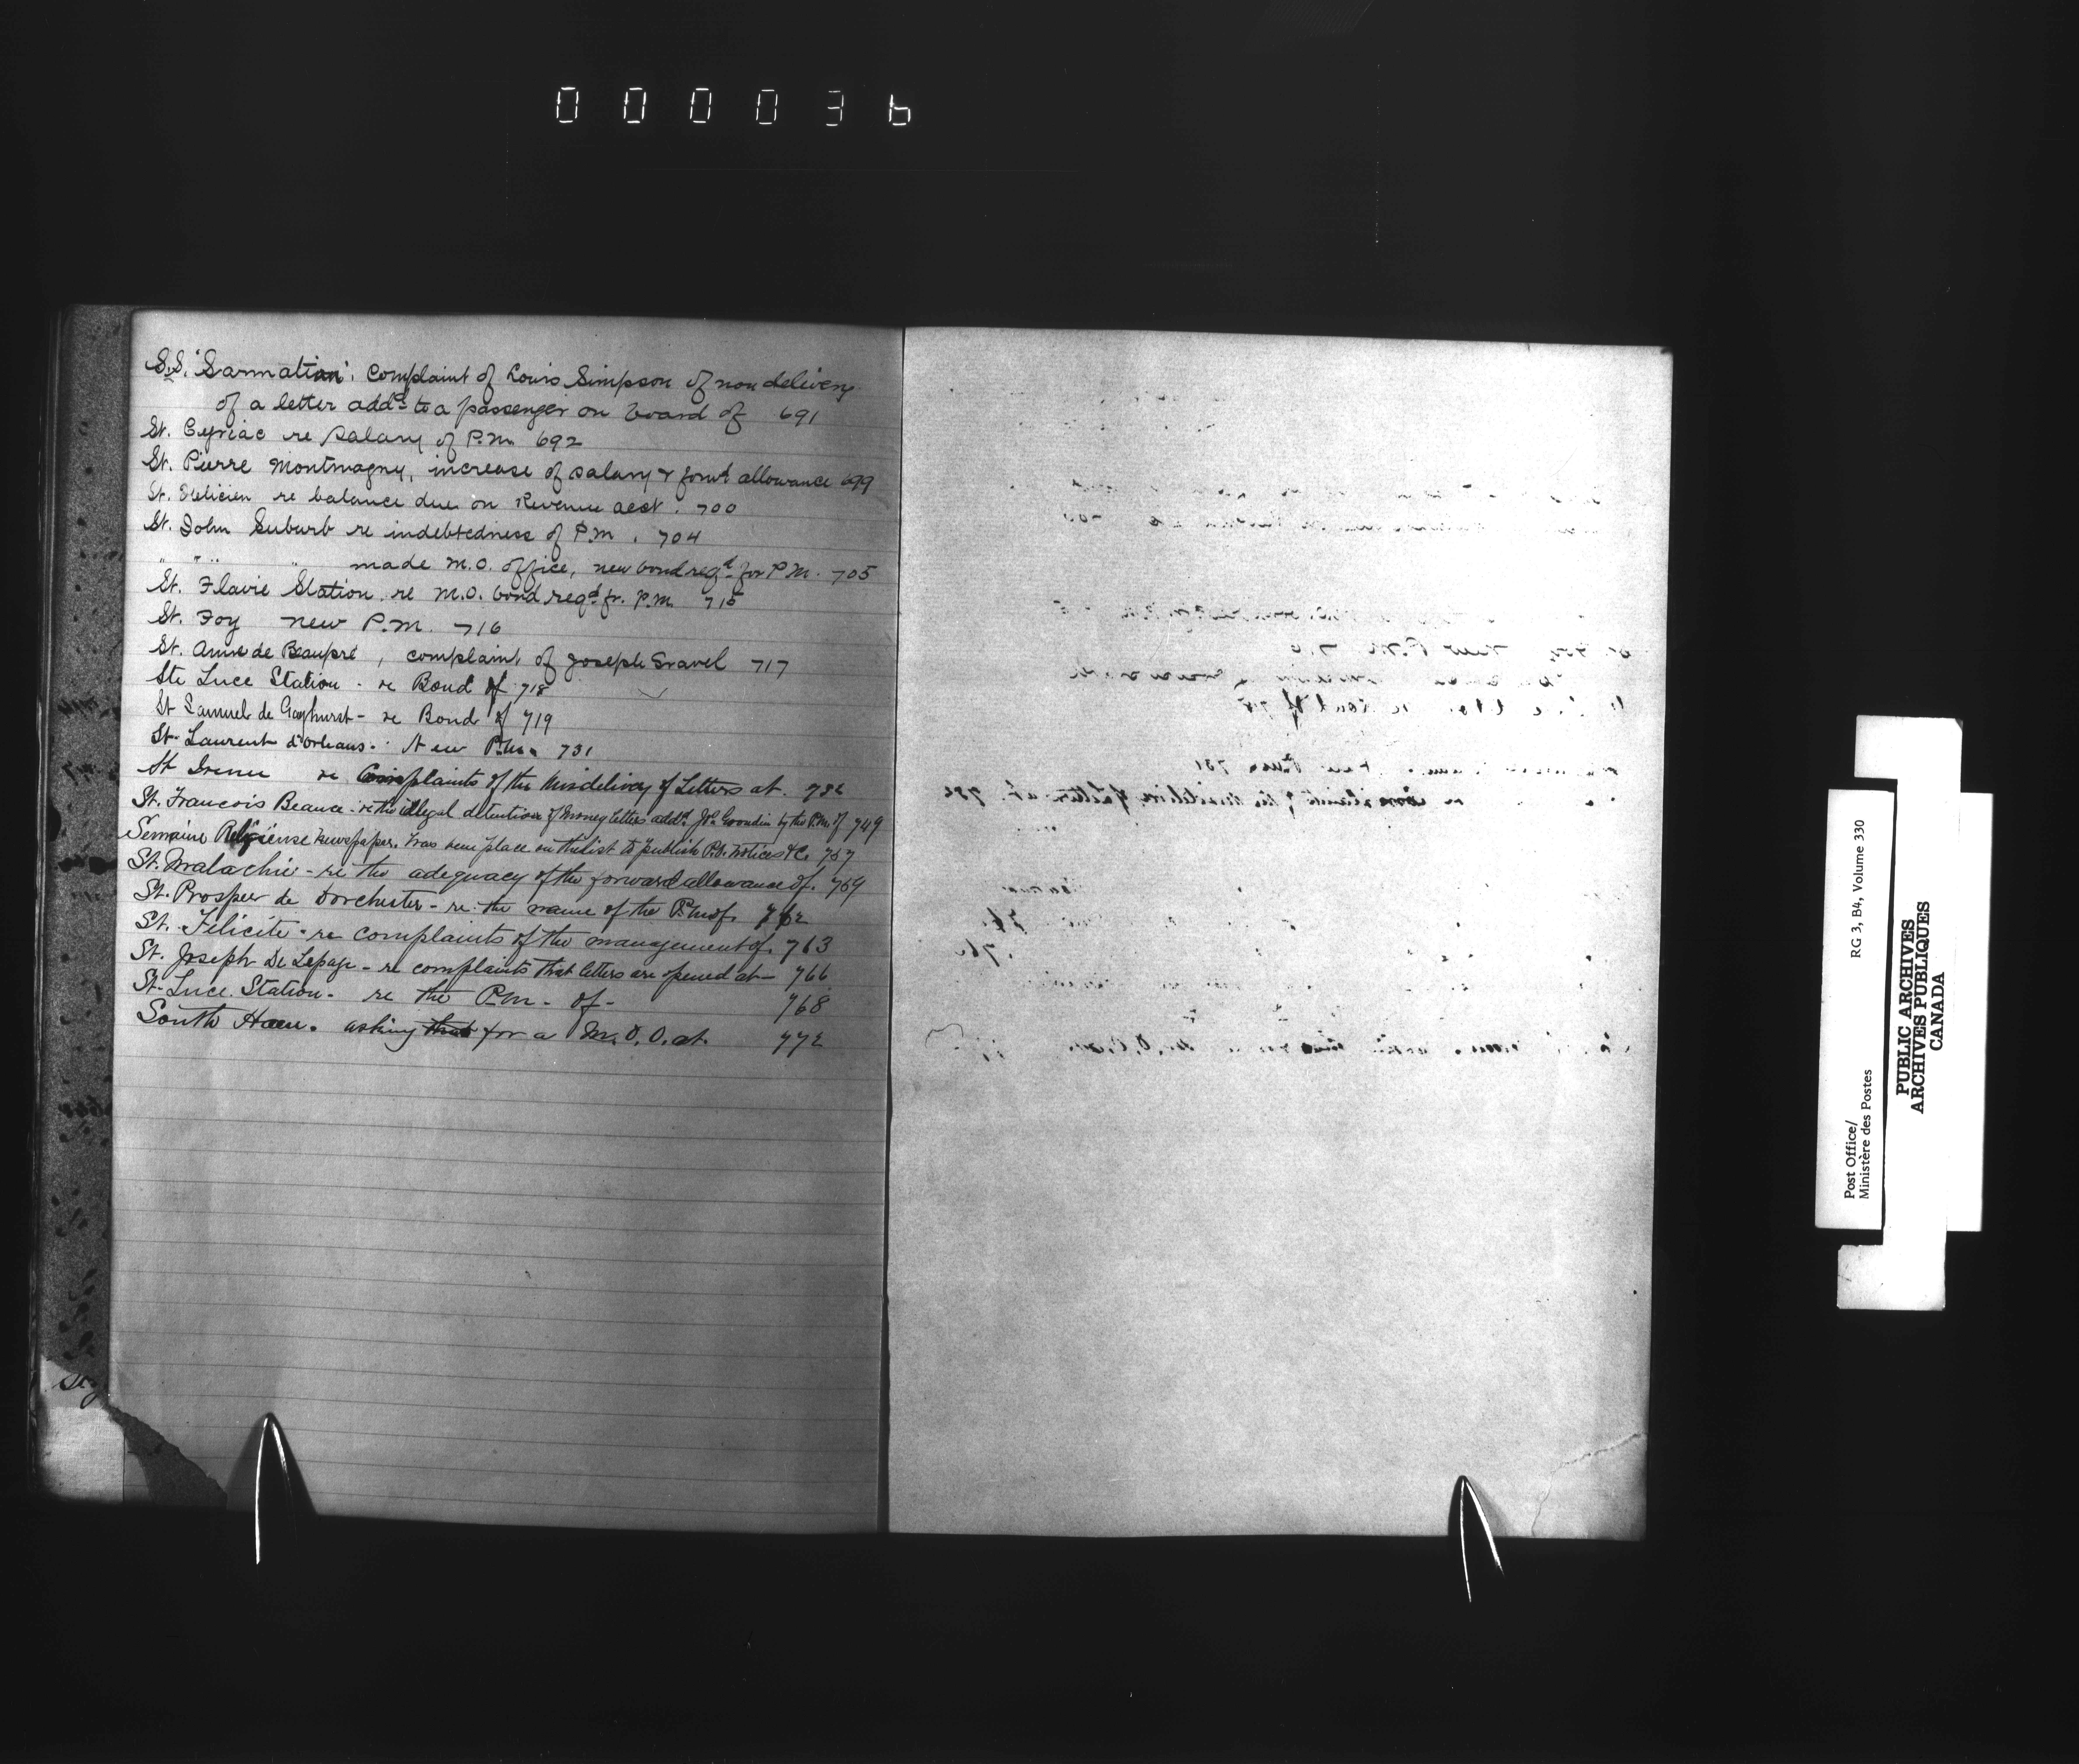 000036
S.S. 'Sarmatian'. Complaint of Louis Simpson of non delivery
of a letter addd to a passenger on board of 691
St. Cyriac re salary of P.M. 692
St. Pierre Montmagny, increase of salary & forwd allowance 699
St. Felicien re balance due on Revenue acct. 700
St. John Suburb re indebtedness of P.M. 704
" " " " made M.O. office, new bond reqd for P.M. 705
St. Flavie Station re M.O. bond reqd fr. P.M. 715
St. Foy new P.M. 716
St. Anne de Beaupré, complaint of Joseph Gravel 717
Ste Luce Station - re Bond of 718
St Samuel de Gayhurst - re Bond of 719
St. Laurent d'Orleans. New P.M. 731
St Irenee re Complaints of the Misdelivery of Letters at. 732
St. Francois Beauce - re the illegal detention of money letters addd Jos. Grondin by the P.M. of 749
Semaine Religieuse Newspaper. place on the list to publish P.O. Notices &c. 757
St. Malachie - re the adequacy of the forward allowance of. 759
St. Prosper de Dorchester - re the name of the P.M. of. 762
St. Félicité - re complaints of the management of. 763
St. Joseph De Lepage - re complaints that letters are opened at - 766
St. Luce Station - re the P.M. - of - 768
South Ham. asking that for a M.O.O. at. 772
Post Office/
Ministère des Postes
RG 3, B4, Volume 330
PUBLIC ARCHIVES
ARCHIVES PUBLIQUES
CANADA